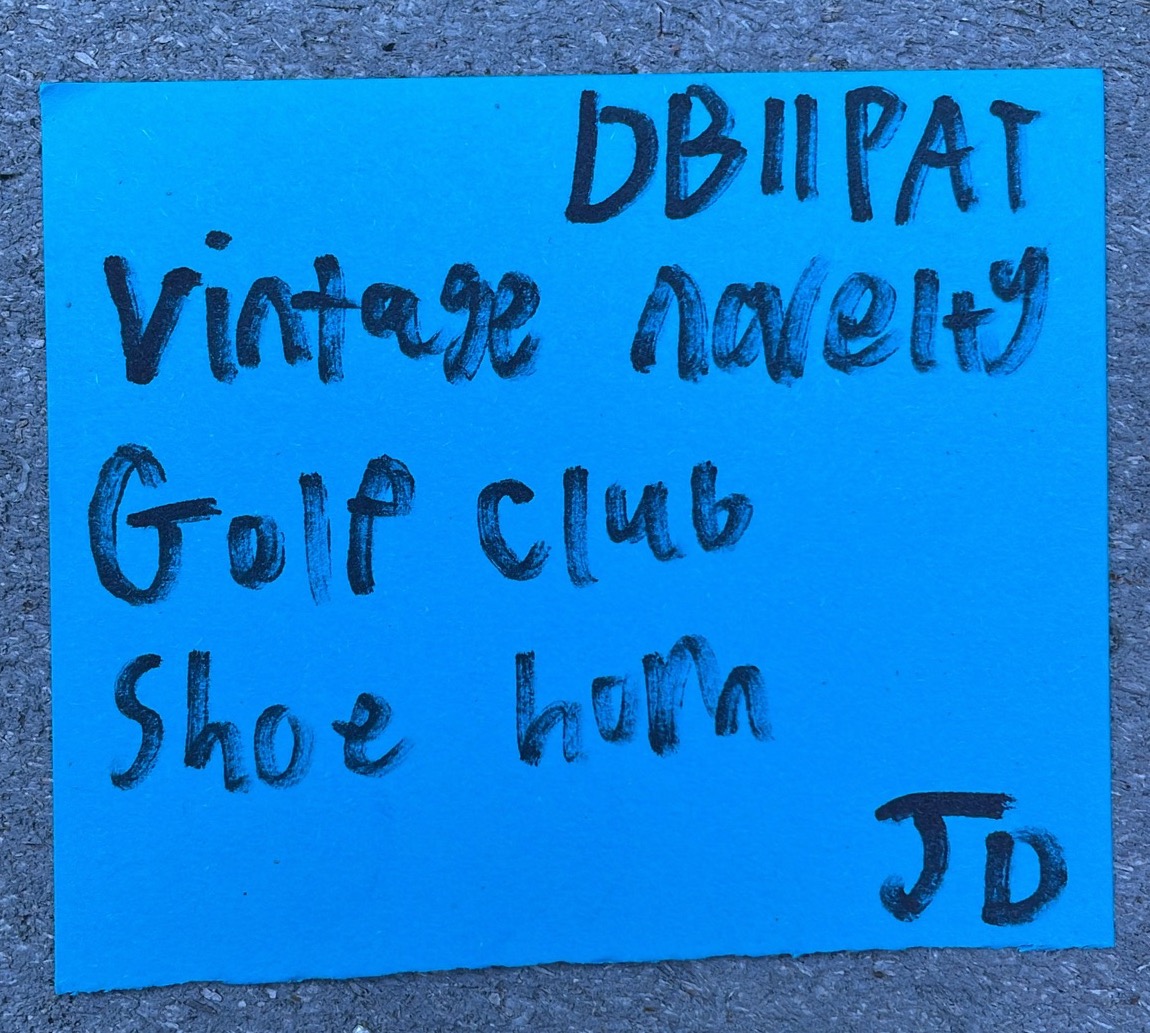 DB11PAT
Vintage novelty
Golf club
Shoe horn
JD